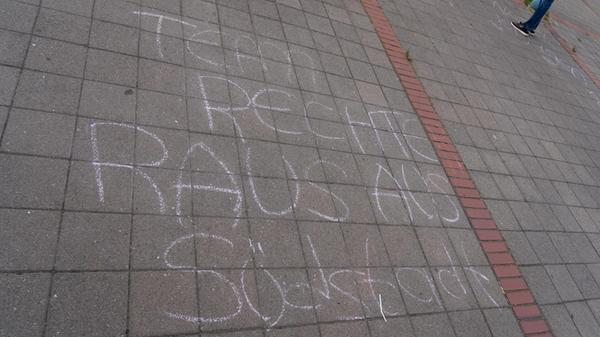 Team
RECHTE
RAUS AUS
Südstadt